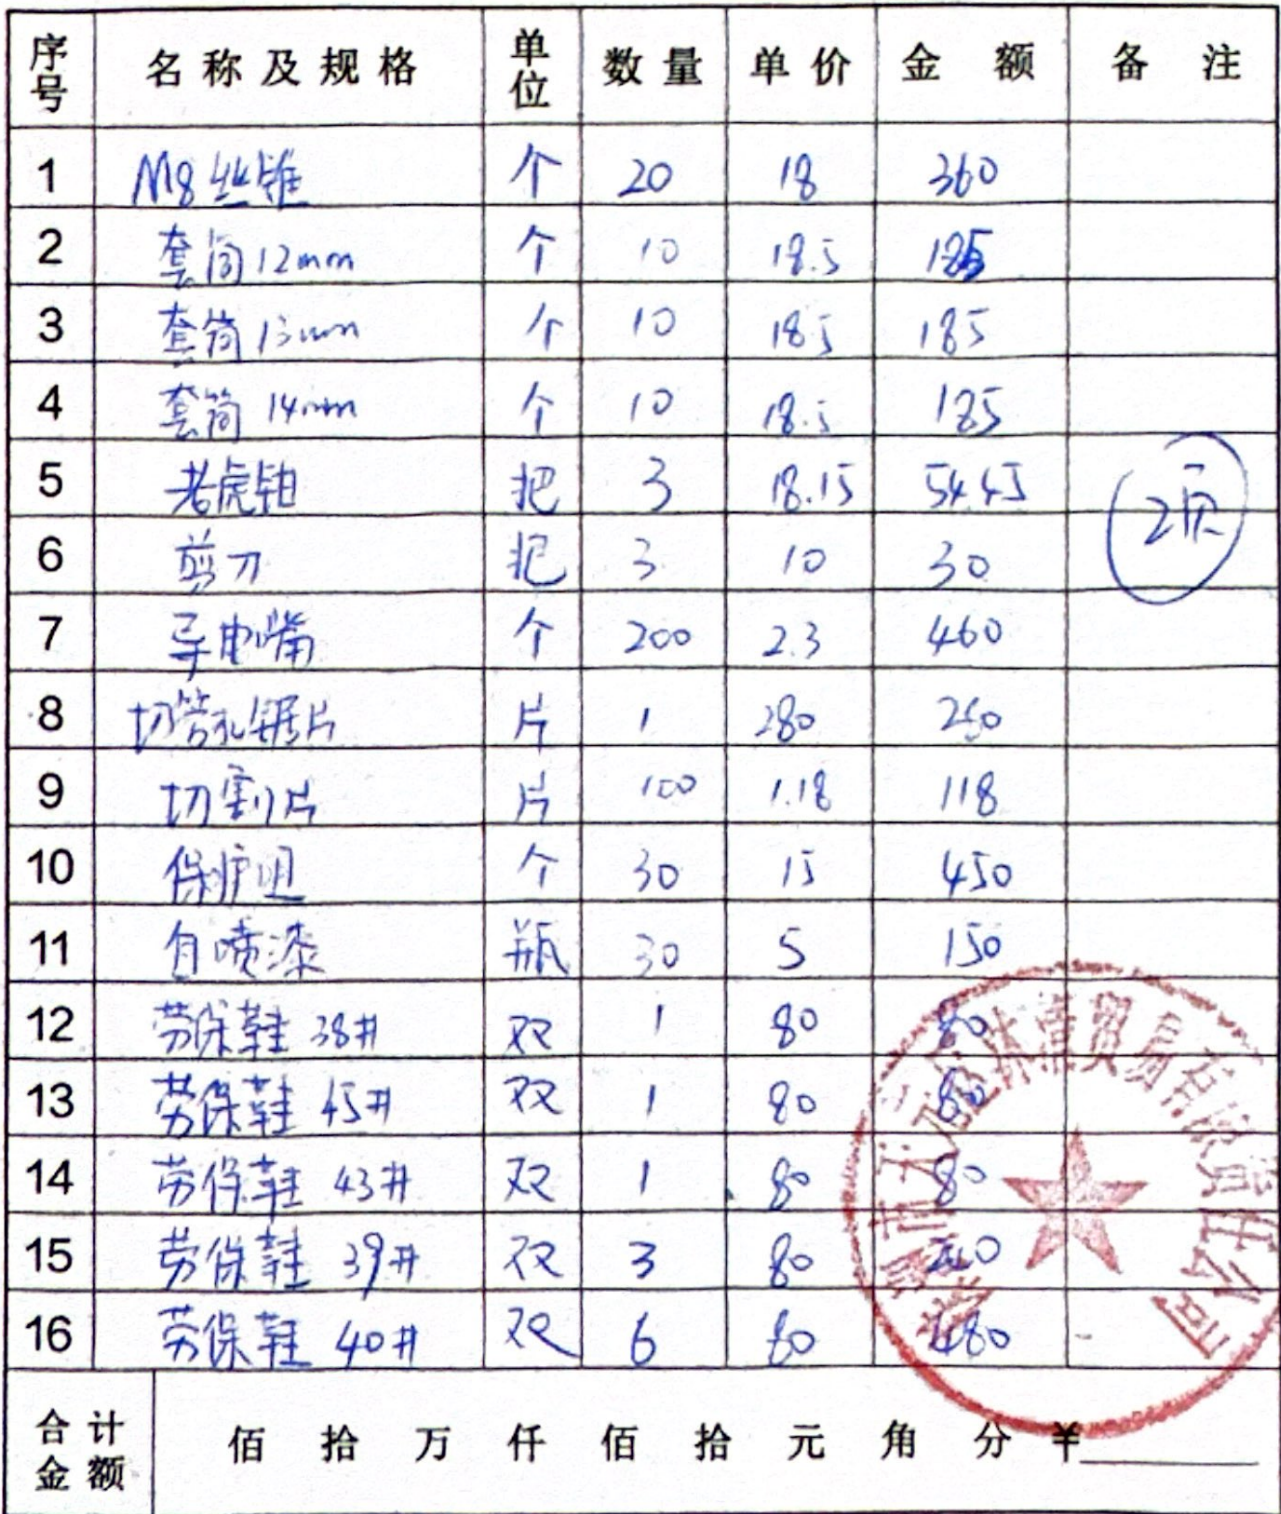 序号 名称及规格 单位 数量 单价 金额 备注
1 M8丝锥 个 20 18 360
2 套筒12mm 个 10 18.5 185
3 套筒13mm 个 10 18.5 185
4 套筒14mm 个 10 18.5 185
5 老虎钳 把 3 18.15 54.45
2页
6 剪刀 把 3 10 30
7 导电嘴 个 200 2.3 460
8 切管机锯片 片 1 280 280
9 切割片 片 100 1.18 118
10 保护咀 个 30 15 450
11 自喷漆 瓶 30 5 150
12 劳保鞋 38# 双 1 80 80
13 劳保鞋 45# 双 1 80 80
14 劳保鞋 43# 双 1 80 80
15 劳保鞋 39# 双 3 80 240
16 劳保鞋 40# 双 6 80 480
贸易有限责任公司
合计金额 佰 拾 万 仟 佰 拾 元 角 分 ¥